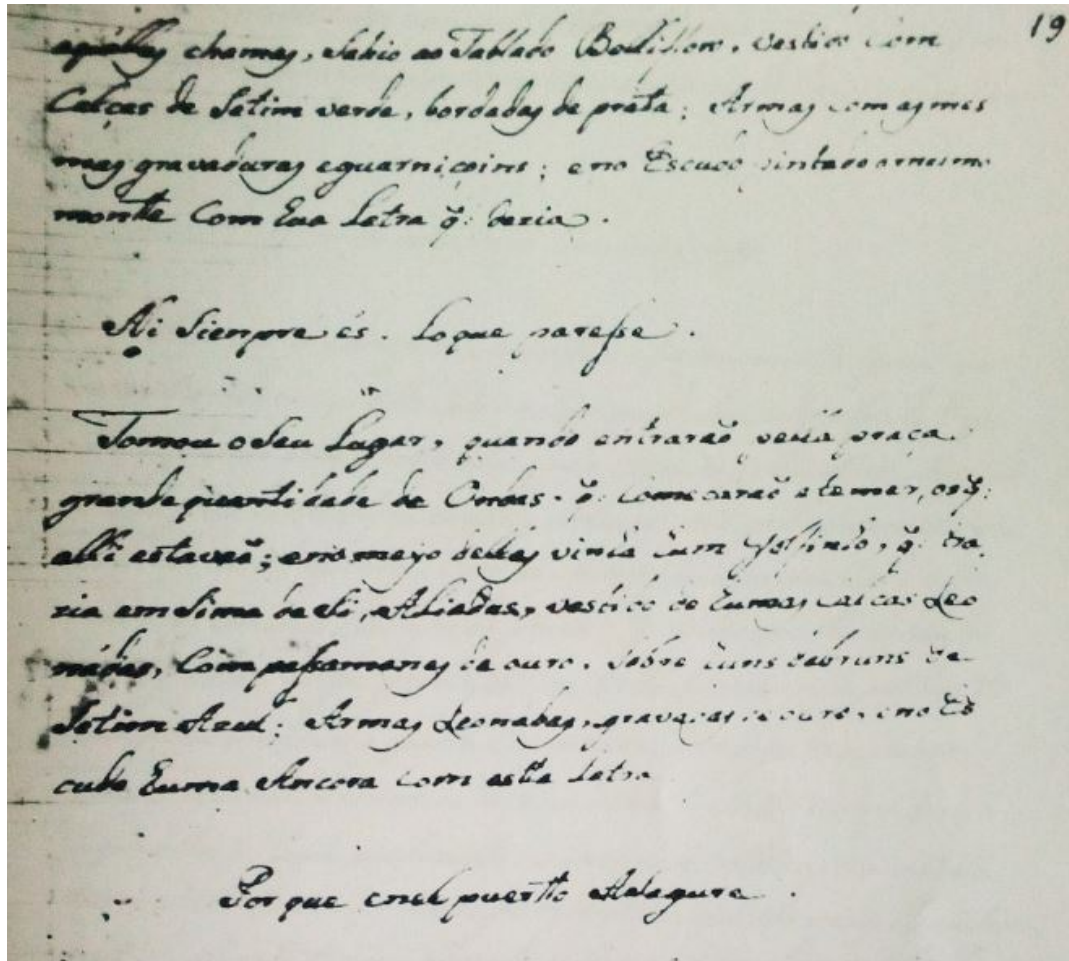 19
aquellas chamas, Sahio ao Tablado Bedifloro, vestido com
Calças de Setim verde, bordadas de prata; Armas com as mes
mas gravaduras e guarniçoins; e no Escudo pintado o mesmo
monte Com hua Letra q̃. dezia.
Ni Sienpre és. lo que paresse.
Tomou o Seu Lugar, quando entrarão pella praça
grande quantidade de Ondas. q̃. Comesarão a temer, os q̃.
alli estavaõ; e no meyo dellas vinha hum Golfinho, q̃. tra
zia em Sima de Si, vestido de humas calças Leo
nádas, Com passamanes de ouro, Sobre huns débruns de
Setim Azul; Armas Leonadas, gravadas de ouro, e no Es
cudo huma Ancora com esta Letra
Por que en el puerto